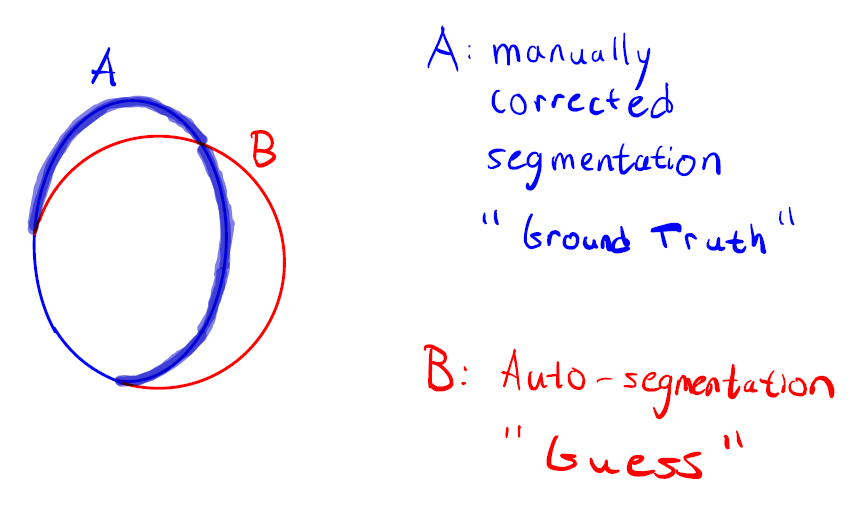 A
B
A: manually
corrected
segmentation
"Ground Truth"
B: Auto-segmentation
"Guess"